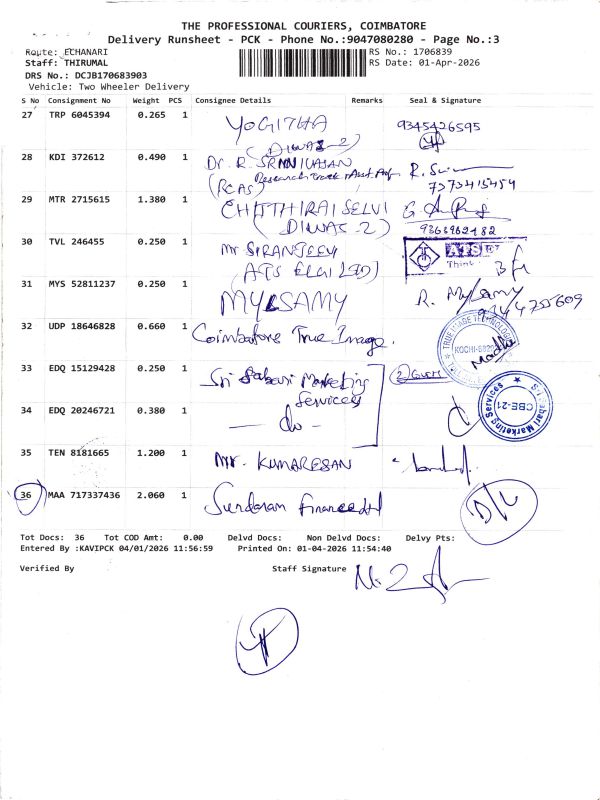 THE PROFESSIONAL COURIERS, COIMBATORE
Delivery Runsheet - PCK - Phone No.:9047080280 - Page No.:3
Route: ECHANARI
RS No.: 1706839
Staff: THIRUMAL
RS Date: 01-Apr-2026
DRS No.: DCJB170683903
Vehicle: Two Wheeler Delivery
S No Consignment No Weight PCS Consignee Details Remarks Seal & Signature
27 TRP 6045394 0.265 1 YOGITHA 9345426595
(DIWAS-2)
28 KDI 372612 0.490 1 Dr. R. SRINIVASAN
(RCAS) Research Track, Asst. Prof. R.
7373415454
29 MTR 2715615 1.380 1 CHITTHIRAI SELVI
(DIWAS-2) 9363962182
30 TVL 246455 0.250 1 Mr SIRANJEEVI
(ATS ELGI LTD) ATS
Think
31 MYS 52811237 0.250 1 MYLSAMY R. Mylsamy
32 UDP 18646828 0.660 1 Coimbatore True Image.
TRUE IMAGE TECHNOLOGIES
33 EDQ 15129428 0.250 1 Sri Sabari Marketing
Services
34 EDQ 20246721 0.380 1 - do -
Sabari Marketing Services
CBE-21
35 TEN 8181665 1.200 1 Mr. KUMARESAN
36 MAA 717337436 2.060 1 Sundaram Finance Ltd D/L
Tot Docs: 36 Tot COD Amt: 0.00 Delvd Docs: Non Delvd Docs: Delvy Pts:
Entered By :KAVIPCK 04/01/2026 11:56:59 Printed On: 01-04-2026 11:54:40
Verified By Staff Signature